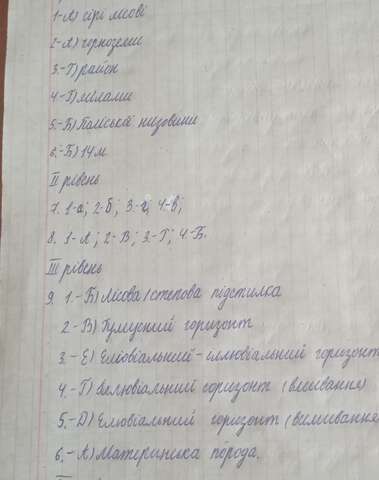 1-А) сірі лісові
2-А) чорноземи
3.-Г) район
4.-Г) мілами
5.-Б) Поліській низовини
6.-Б) 14 м
ІІ рівень
7. 1-а; 2-Б; 3-г; 4-в;
8. 1-А; 2-В; 3-Г; 4-Б.
ІІІ рівень
9. 1.-Б) Лісова/степова підстилка
2-В) Гумусний горизонт
3.-Е) Елювіальний-ілювіальний горизонт
4.-Г) Ілювіальний горизонт (вмивання)
5.-Д) Елювіальний горизонт (вимивання
6.-А) Материнська порода.